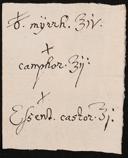 ℞. mÿrrh. ʒiv.
+
camphor. ʒij:
+
Essent. castor. ʒj.